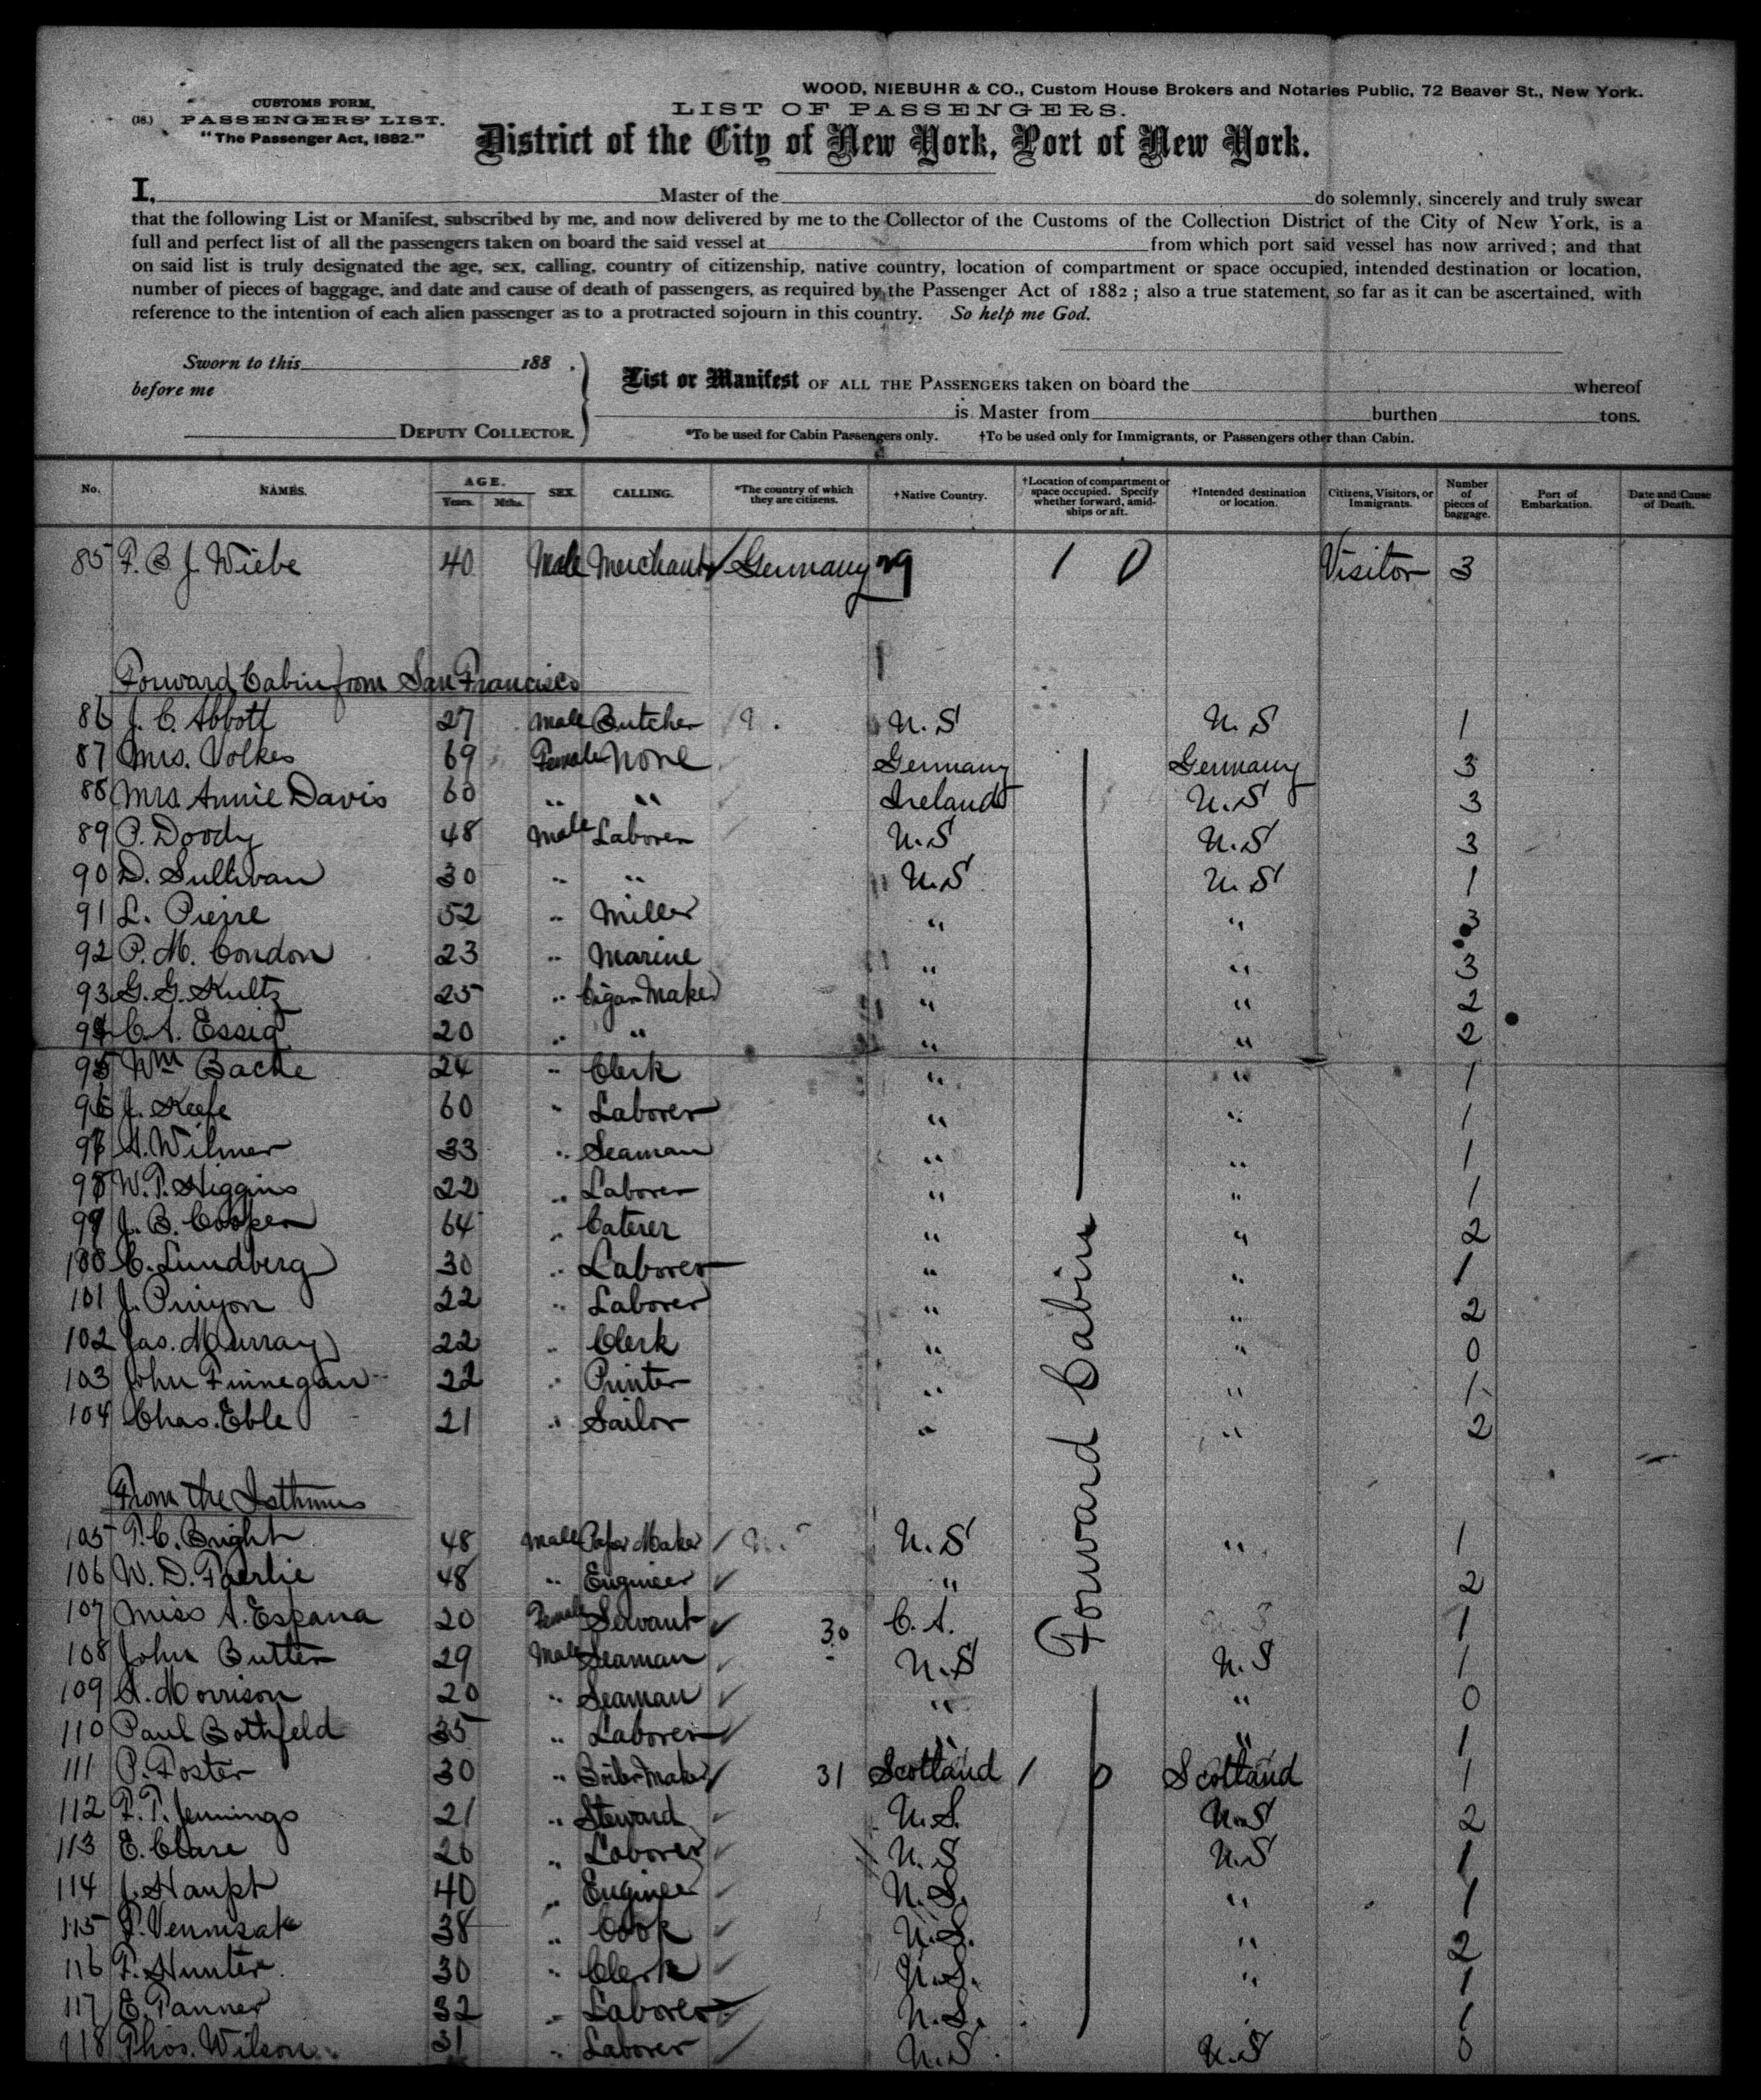 WOOD, NIEBUHR & CO., Custom House Brokers and Notaries Public, 72 Beaver St., New York.
CUSTOMS FORM,
(18.) PASSENGERS' LIST.
"The Passenger Act, 1882."
LIST OF PASSENGERS.
District of the City of New York, Port of New York.
I, Master of the do solemnly, sincerely and truly swear
that the following List or Manifest, subscribed by me, and now delivered by me to the Collector of the Customs of the Collection District of the City of New York, is a
full and perfect list of all the passengers taken on board the said vessel at from which port said vessel has now arrived; and that
on said list is truly designated the age, sex, calling, country of citizenship, native country, location of compartment or space occupied, intended destination or location,
number of pieces of baggage, and date and cause of death of passengers, as required by the Passenger Act of 1882; also a true statement, so far as it can be ascertained, with
reference to the intention of each alien passenger as to a protracted sojourn in this country. So help me God.
Sworn to this 188 .
before me
DEPUTY COLLECTOR.
List or Manifest OF ALL THE PASSENGERS taken on board the whereof
is Master from burthen tons.
*To be used for Cabin Passengers only. †To be used only for Immigrants, or Passengers other than Cabin.
No. NAMES. AGE. Years. Mths. SEX. CALLING. *The country of which they are citizens. †Native Country. †Location of compartment or space occupied. Specify whether forward, amidships or aft. †Intended destination or location. Citizens, Visitors, or Immigrants. Number of pieces of baggage. Port of Embarkation. Date and Cause of Death.
85 F. B J. Wiebe 40 Male Merchant Germany 29 1 0 Visitor 3
Forward Cabin from San Francisco
86 J. C. Abbott 27 Male Butcher U.S U.S 1
87 Mrs. Volkes 69 Female None Germany Germany 3
88 Mrs Annie Davis 60 " " Ireland U.S 3
89 P. Doody 48 Male Laborer U.S U.S 3
90 D. Sullivan 30 " " U.S U.S 1
91 L. Pierre 52 " Miller " " 3
92 P. M. Condon 23 " Marine " " 3
93 G. G. Kultz 25 " Cigar Maker " " 2
94 C. A. Essig 20 " " " " 2
95 Wm Bache 24 " Clerk " " 1
96 J. Keefe 60 " Laborer " " 1
97 A. Wilmer 33 " Seaman " " 1
98 W. P. Higgins 22 " Laborer " " 1
99 J. B. Cooper 64 " Caterer " " 2
100 C. Lundberg 30 " Laborer " " 1
101 J. Pinyon 22 " Laborer " " 2
102 Jas. Murray 22 " Clerk " " 0
103 John Finnegan 22 " Printer " " 1
104 Chas. Eble 21 " Sailor " " 2
Forward Cabin
From the Isthmus
105 P. C. Bright 48 Male Paper Maker U.S " 1
106 W. D. Faerlie 48 " Engineer " 2
107 Miss A. Espana 20 Female Servant 30 C. A. 1
108 John Butter 29 Male Seaman U.S U.S 1
109 A. Morrison 20 " Seaman " " 0
110 Paul Bothfeld 35 " Laborer " " 1
111 P. Foster 30 " Boiler Maker 31 Scotland 1 0 Scotland 1
112 F. P. Jennings 21 " Steward U.S. U.S 2
113 E. Clare 26 " Laborer U.S U.S 1
114 J. Haupt 40 " Engineer U.S. " 1
115 38 " Cook U.S. " 2
116 F. Hunter 30 " Clerk U.S. " 1
117 E. Panner 32 " Laborer U.S. 1
118 Thos. Wilson 31 " Laborer U.S. U.S 0